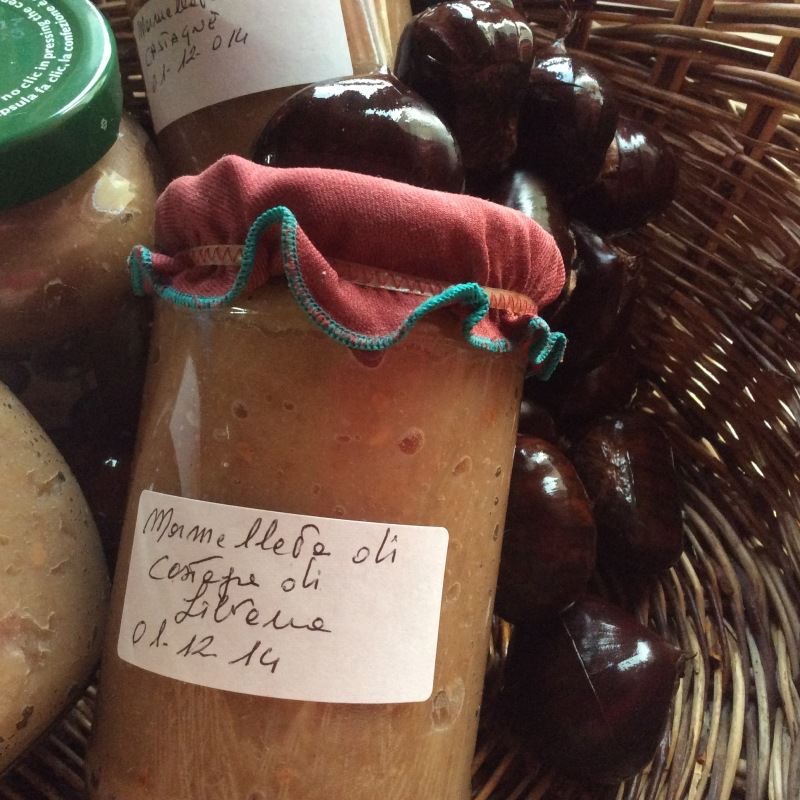 no clic in pressing the ce
psula fa clic, la confezione è
Marmellata
CASTAGNE
01-12-014
Marmellata di
Castagne di
01-12 14